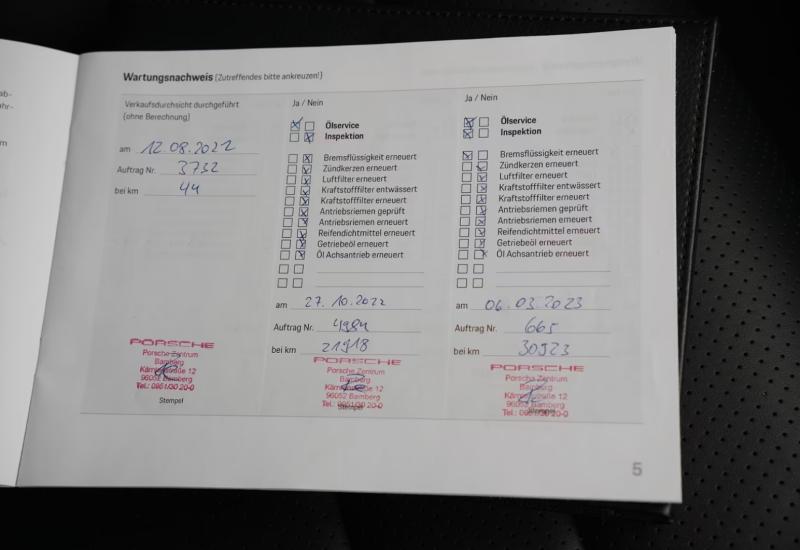 Wartungsnachweis (Zutreffendes bitte ankreuzen!)
Verkaufsdurchsicht durchgeführt
(ohne Berechnung)
am 12.08.2022
Auftrag Nr. 3732
bei km 44
PORSCHE
Porsche Zentrum
Bamberg
96052 Bamberg
Tel.: 0951/30 20-0
Stempel
Ja / Nein
Ölservice
Inspektion
Bremsflüssigkeit erneuert
Zündkerzen erneuert
Luftfilter erneuert
Kraftstofffilter entwässert
Kraftstofffilter erneuert
Antriebsriemen geprüft
Antriebsriemen erneuert
Reifendichtmittel erneuert
Getriebeöl erneuert
Öl Achsantrieb erneuert
am 27.10.2022
Auftrag Nr. 4984
bei km 21918
PORSCHE
Porsche Zentrum
Bamberg
96052 Bamberg
Tel.: 0951/30 20-0
Stempel
Ja / Nein
Ölservice
Inspektion
Bremsflüssigkeit erneuert
Zündkerzen erneuert
Luftfilter erneuert
Kraftstofffilter entwässert
Kraftstofffilter erneuert
Antriebsriemen geprüft
Antriebsriemen erneuert
Reifendichtmittel erneuert
Getriebeöl erneuert
Öl Achsantrieb erneuert
am 06.03.2023
Auftrag Nr. 665
bei km 30923
PORSCHE
Porsche Zentrum
Bamberg
96052 Bamberg
Tel.: 0951/30 20-0
Stempel
5